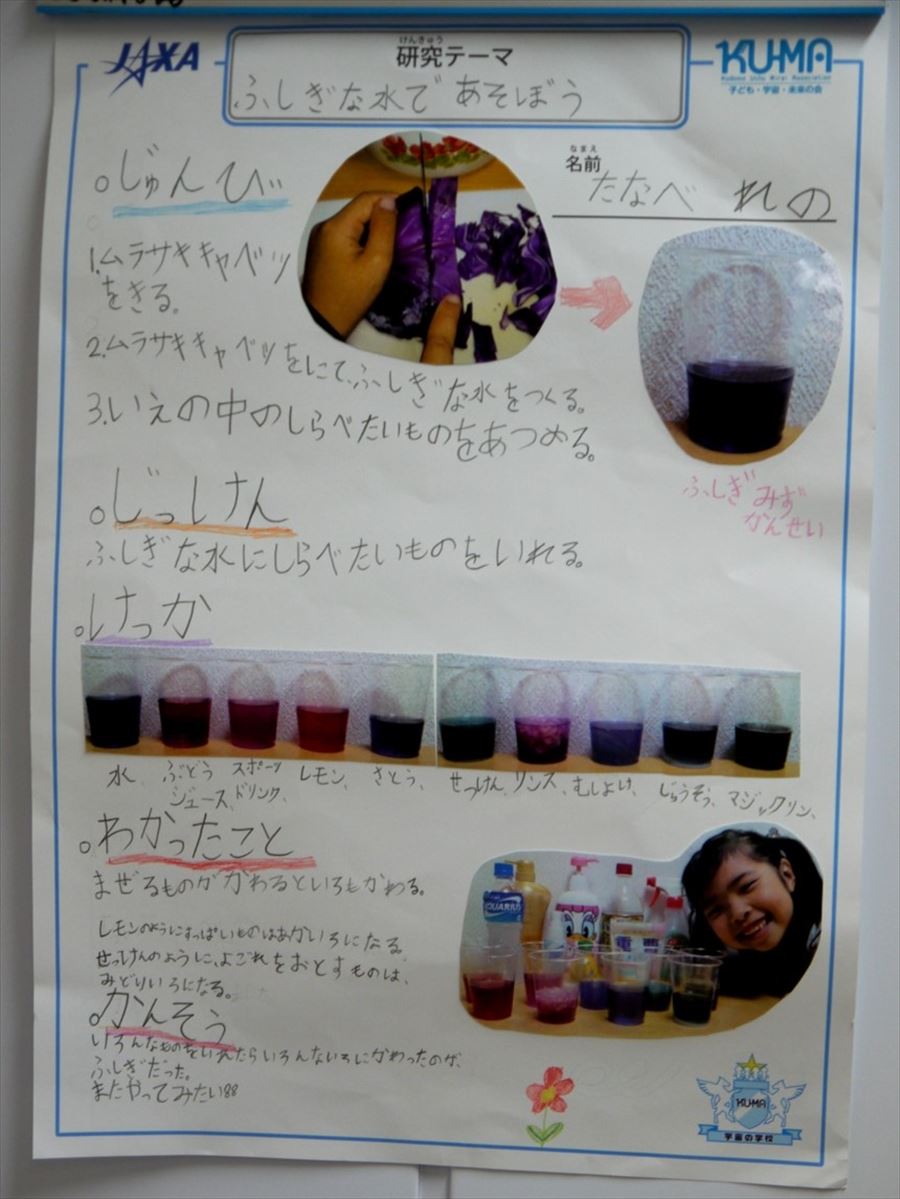 JAXA
けんきゅう
研究テーマ
KU-MA
Kodomo Uchu Mirai Association
子ども・宇宙・未来の会
ふしぎな水であそぼう
なまえ
名前
たなべ れの
○じゅんび
1.ムラサキキャベツ
をきる。
2.ムラサキキャベツをにて、ふしぎな水をつくる。
3.いえの中のしらべたいものをあつめる。
ふしぎみず
かんせい
○じっけん
ふしぎな水にしらべたいものをいれる。
○けっか
水、
ぶどう
ジュース、
スポーツ
ドリンク、
レモン、
さとう、
せっけん、
リンス、
むしよけ、
じゅうそう、
マジックリン、
○わかったこと
まぜるものがかわるといろもかわる。
レモンのようにすっぱいものはあかいろになる
せっけんのように、よごれをおとすものは、
みどりいろになる。
AQUARIUS
○かんそう
いろんなものをいれたらいろんないろにかわったのが、
ふしぎだった。
またやってみたい
KU-MA
宇宙の学校